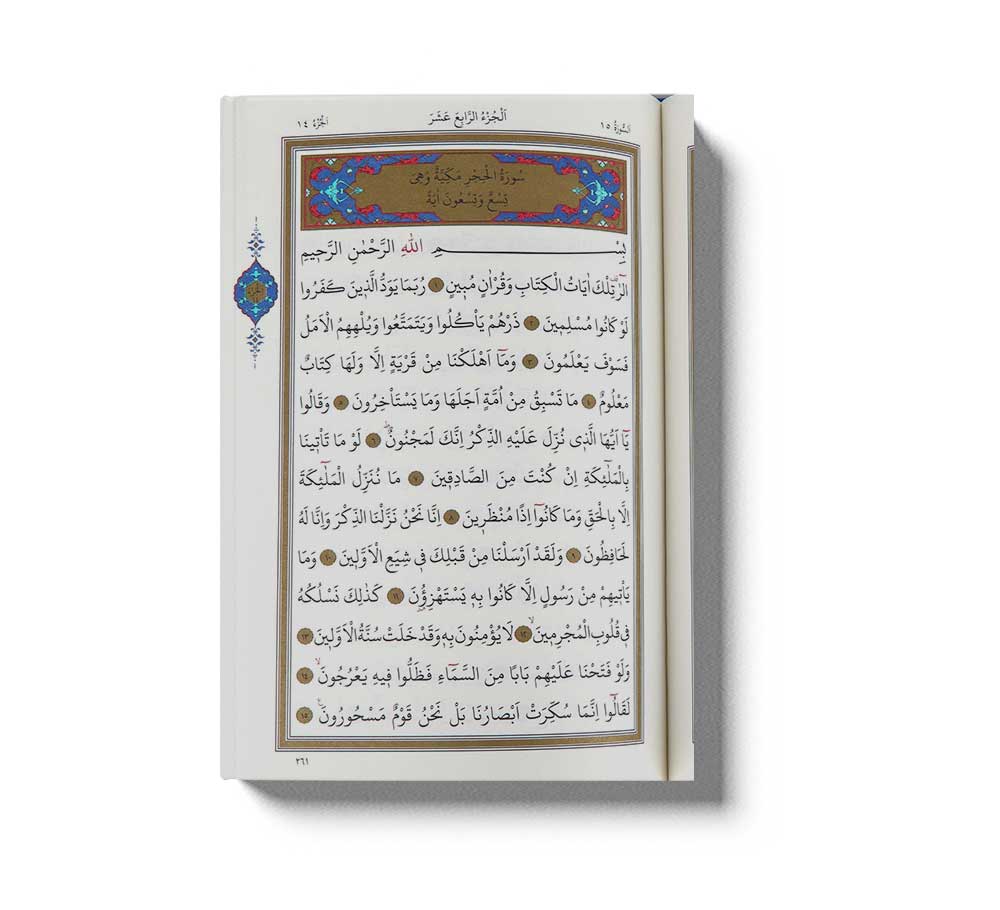 اَلْجُزْءُ الرَّابِعَ عَشَرَ
اَلسُّورَةُ ١٥
اَلْجُزْءُ ١٤
سُورَةُ الْحِجْرِ مَكِّيَّةٌ وَهِيَ
تِسْعٌ وَتِسْعُونَ اٰيَةً
بِسْمِ اللّٰهِ الرَّحْمٰنِ الرَّحٖيمِ
الٓرٰ تِلْكَ اٰيَاتُ الْكِتَابِ وَقُرْاٰنٍ مُبٖينٍ ١ رُبَمَا يَوَدُّ الَّذٖينَ كَفَرُوا
لَوْ كَانُوا مُسْلِمٖينَ ٢ ذَرْهُمْ يَأْكُلُوا وَيَتَمَتَّعُوا وَيُلْهِهِمُ الْاَمَلُ
فَسَوْفَ يَعْلَمُونَ ٣ وَمَٓا اَهْلَكْنَا مِنْ قَرْيَةٍ اِلَّا وَلَهَا كِتَابٌ
مَعْلُومٌ ٤ مَا تَسْبِقُ مِنْ اُمَّةٍ اَجَلَهَا وَمَا يَسْتَأْخِرُونَ ٥ وَقَالُوا
يَٓا اَيُّهَا الَّذٖى نُزِّلَ عَلَيْهِ الذِّكْرُ اِنَّكَ لَمَجْنُونٌؕ ٦ لَوْ مَا تَأْتٖينَا
بِالْمَلٰٓئِكَةِ اِنْ كُنْتَ مِنَ الصَّادِقٖينَ ٧ مَا نُنَزِّلُ الْمَلٰٓئِكَةَ
اِلَّا بِالْحَقِّ وَمَا كَانُٓوا اِذًا مُنْظَرٖينَ ٨ اِنَّا نَحْنُ نَزَّلْنَا الذِّكْرَ وَاِنَّا لَهُ
لَحَافِظُونَ ٩ وَلَقَدْ اَرْسَلْنَا مِنْ قَبْلِكَ فٖى شِيَعِ الْاَوَّلٖينَ ١٠ وَمَا
يَأْتٖيهِمْ مِنْ رَسُولٍ اِلَّا كَانُوا بِهٖ يَسْتَهْزِؤُ۫نَ ١١ كَذٰلِكَ نَسْلُكُهُ
فٖى قُلُوبِ الْمُجْرِمٖينَۙ ١٢ لَا يُؤْمِنُونَ بِهٖ وَقَدْ خَلَتْ سُنَّةُ الْاَوَّلٖينَ ١٣
وَلَوْ فَتَحْنَا عَلَيْهِمْ بَابًا مِنَ السَّمَٓاءِ فَظَلُّوا فٖيهِ يَعْرُجُونَۙ ١٤
لَقَالُٓوا اِنَّمَا سُكِّرَتْ اَبْصَارُنَا بَلْ نَحْنُ قَوْمٌ مَسْحُورُونَ۟ ١٥
اَلْجُزْءُ
٢٦١